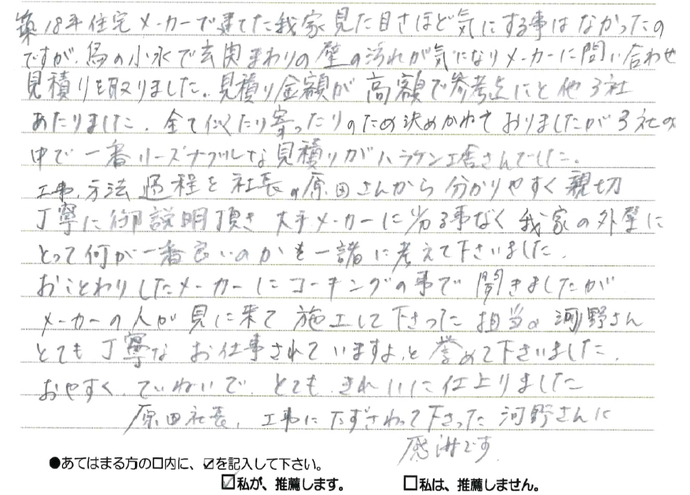 築18年住宅メーカーで建てた我家見た目さほど気にする事はなかったの
ですが、鳥の小水で玄関まわりの壁の汚れが気になりメーカーに問い合わせ
見積りを取りました。見積り金額が高額で参考点にと他3社
あたりました。全て似たり寄ったりのため決めかねておりましたが3社の
中で一番リーズナブルな見積りがハラケン工舎さんでした。
工事方法過程を社長の原田さんから分かりやすく親切
丁寧に御説明頂き大手メーカーに劣る事なく我家の外壁に
とって何が一番良いのかを一諸に考えて下さいました。
おことわりしたメーカーにコーキングの事で聞きましたが
メーカーの人が見に来て施工して下さった担当の河野さん
とても丁寧なお仕事されていますよ。と誉めて下さいました。
おやすく、ていねいで、とてもきれいに仕上りました
原田社長、工事にたずさわって下さった河野さんに
感謝です。
●あてはまる方の口内に、☑を記入して下さい。
☑私が、推薦します。 □私は、推薦しません。